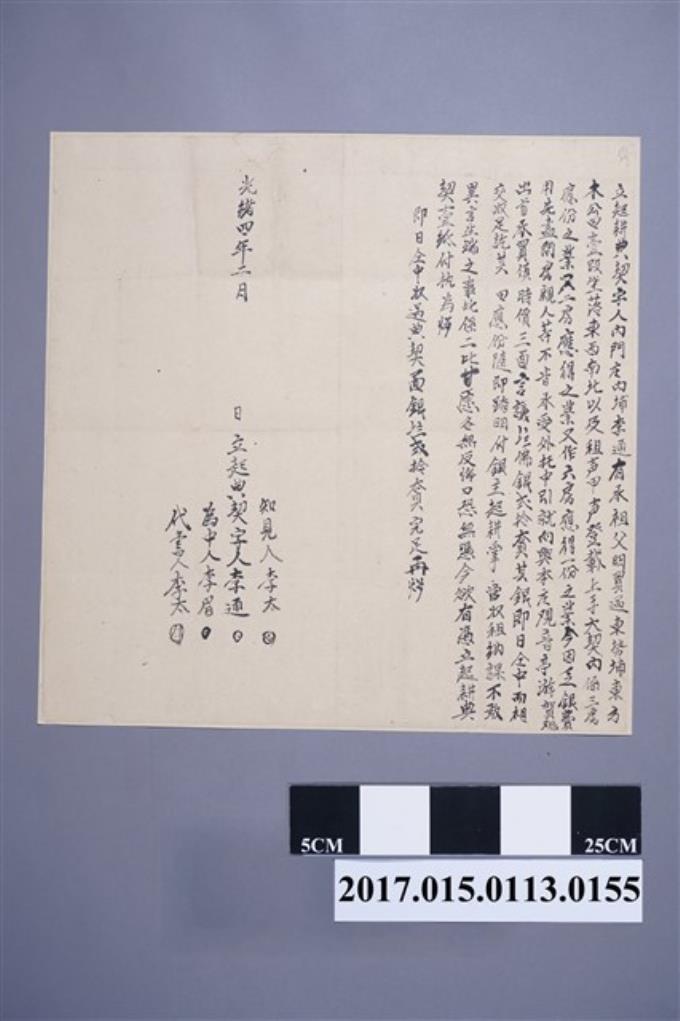 立起耕典契字人內門庄內埔李通有承祖父明買過東勢埔東方
木公田壹段坐落東西南北以及租声甲声登載上手大契內係三房
應份之業又二房應得之業又作六房應得一份之業今因乏銀費
用先盡問房親人等不肯承受外托中引就向與本庄觀音亭游
出首承買值時價三面言議佛銀弍拾叁其銀即日仝中兩相
交收足訖其田應份隨即踏明付銀主起耕掌管收租納課不敢
異言生端之事此係二比甘愿各無反悔口恐無憑今欲有憑立起耕典
契壹紙付執為炤
即日仝中收過典契面銀弍拾叁完足再炤
光緒四年二月 日立起典契字人李通
知見人李太
為中人李眉
代書人李太
5CM 25CM
2017.015.0113.0155